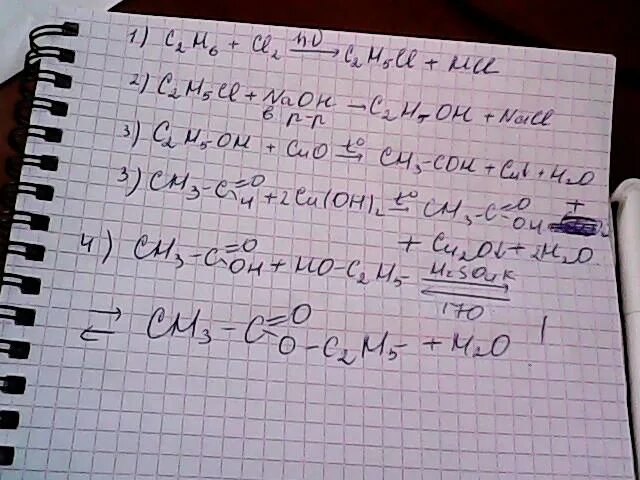 1) C2H6 + Cl2 hν → C2H5Cl + HCl
2) C2H5Cl + NaOH → C2H5OH + NaCl
в р-р
3) C2H5OH + CuO t° → CH3-COH + Cu↓ + H2O
3) CH3-C=O H + 2Cu(OH)2 t° → CH3-C=O OH +
+ Cu2O↓ + 2H2O
4) CH3-C=O OH + HO-C2H5 H2SO4 к ⇄ 170
⇄ CH3-C=O O-C2H5 + H2O